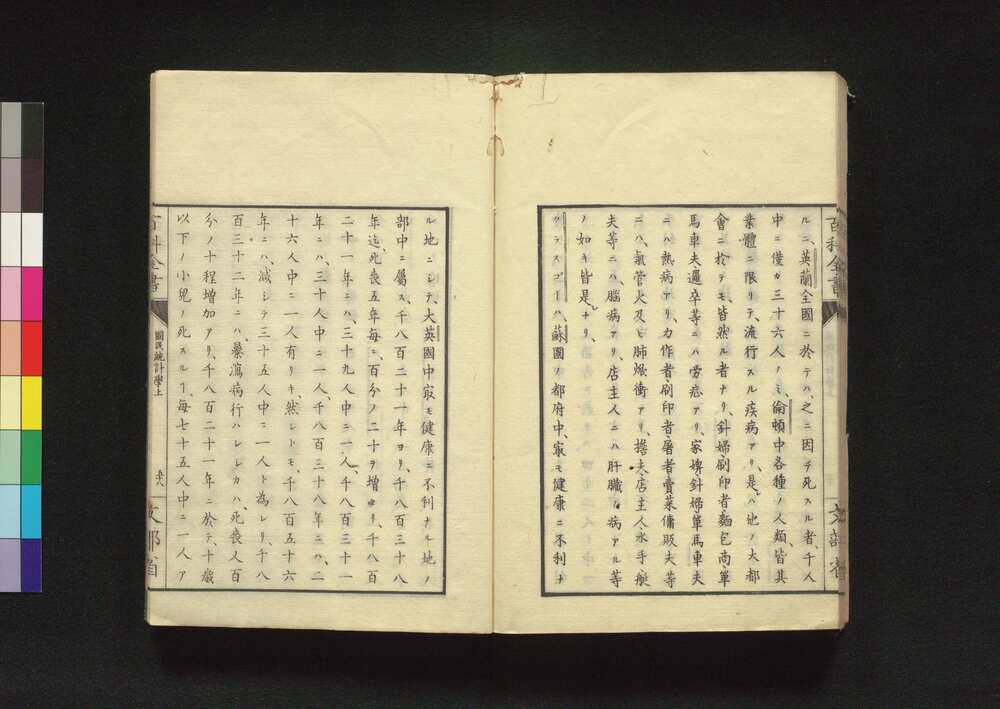 百科全書
文部省
ルニ、英蘭全國ニ於テハ、之ニ因テ死スル者、千人
中ニ僅カ三十六人ノミ、倫頓中各種ノ人類、皆其
業體ニ限リテ、流行スル疾病アリ、是レハ他ノ大都
會ニ於テモ、皆然ル者ナリ、針婦、刷印者、麵包商、單
馬車夫、邏卒等ニハ労〓アリ、家婢、針婦、單馬車夫
ニハ熱病アリ、力作者、刷印者、屠者、賣菜傭、販夫等
ニハ、氣管火及ビ肺焮衝アリ、擔夫、店主人、水手、梃
夫等ニハ、腦病アリ、店主人ニハ肝臓ノ病アル等
ノ如キ皆是レナリ、
グラスゴーハ、蘇國ノ都府中、最モ健康ニ不利ナ
ル地ニシテ、大英國中最モ健康ニ不利ナル地ノ
部中ニ屬ス、千八百二十一年ヨリ、千八百三十八
年迄、死喪五年毎ニ、百分ノ二十ヲ増セリ、千八百
二十一年ニハ、三十九人中ニ一人、千八百三十一
年ニハ、三十人中ニ一人、千八百三十八年ニハ、二
十六人中ニ一人有リキ、然レトモ、千八百五十六
年ニハ、減シテ三十五人中ニ一人ト為レリ、千八
百三十二年ニハ、暴瀉病行ハレシカハ、死喪人百
分ノ十程増加アリ、千八百二十一年ニ於テ、十歳
以下ノ小兒ノ死スルヿ、毎七十五人中ニ一人ア
百科全書
國民統計學上
五十八
文部省